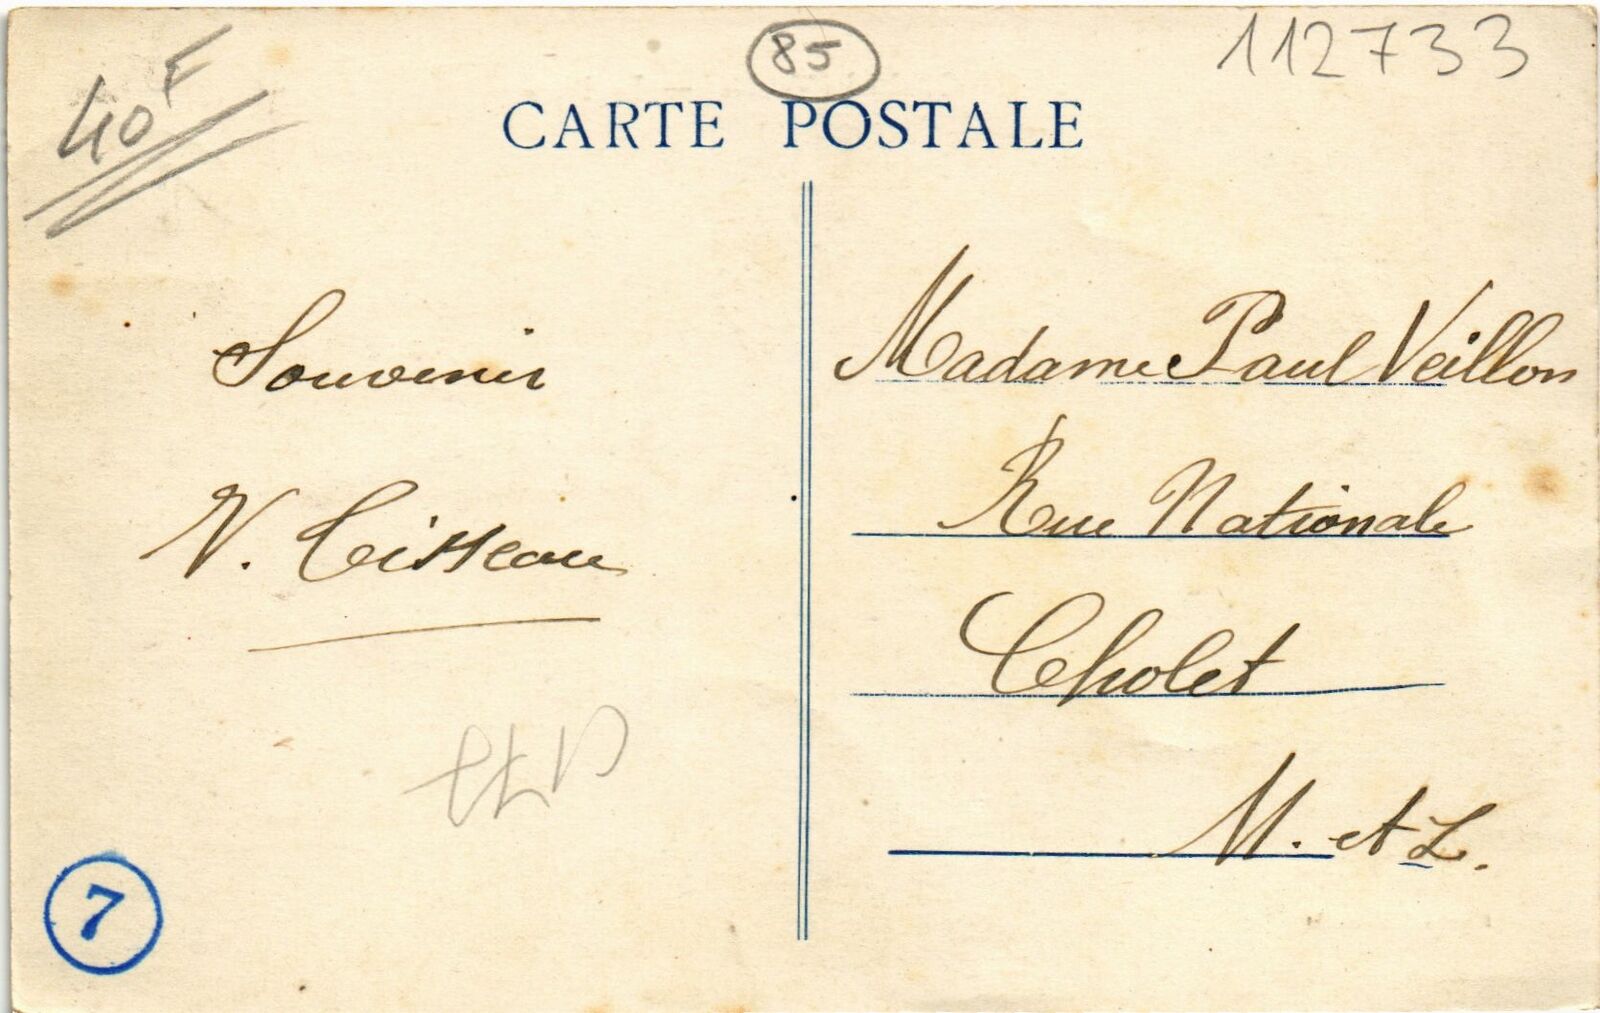 40F
85
112733
CARTE POSTALE
Souvenir
V. Tisseau
Madame Paul Veillon
Rue Nationale
Cholet
M. et L.
7